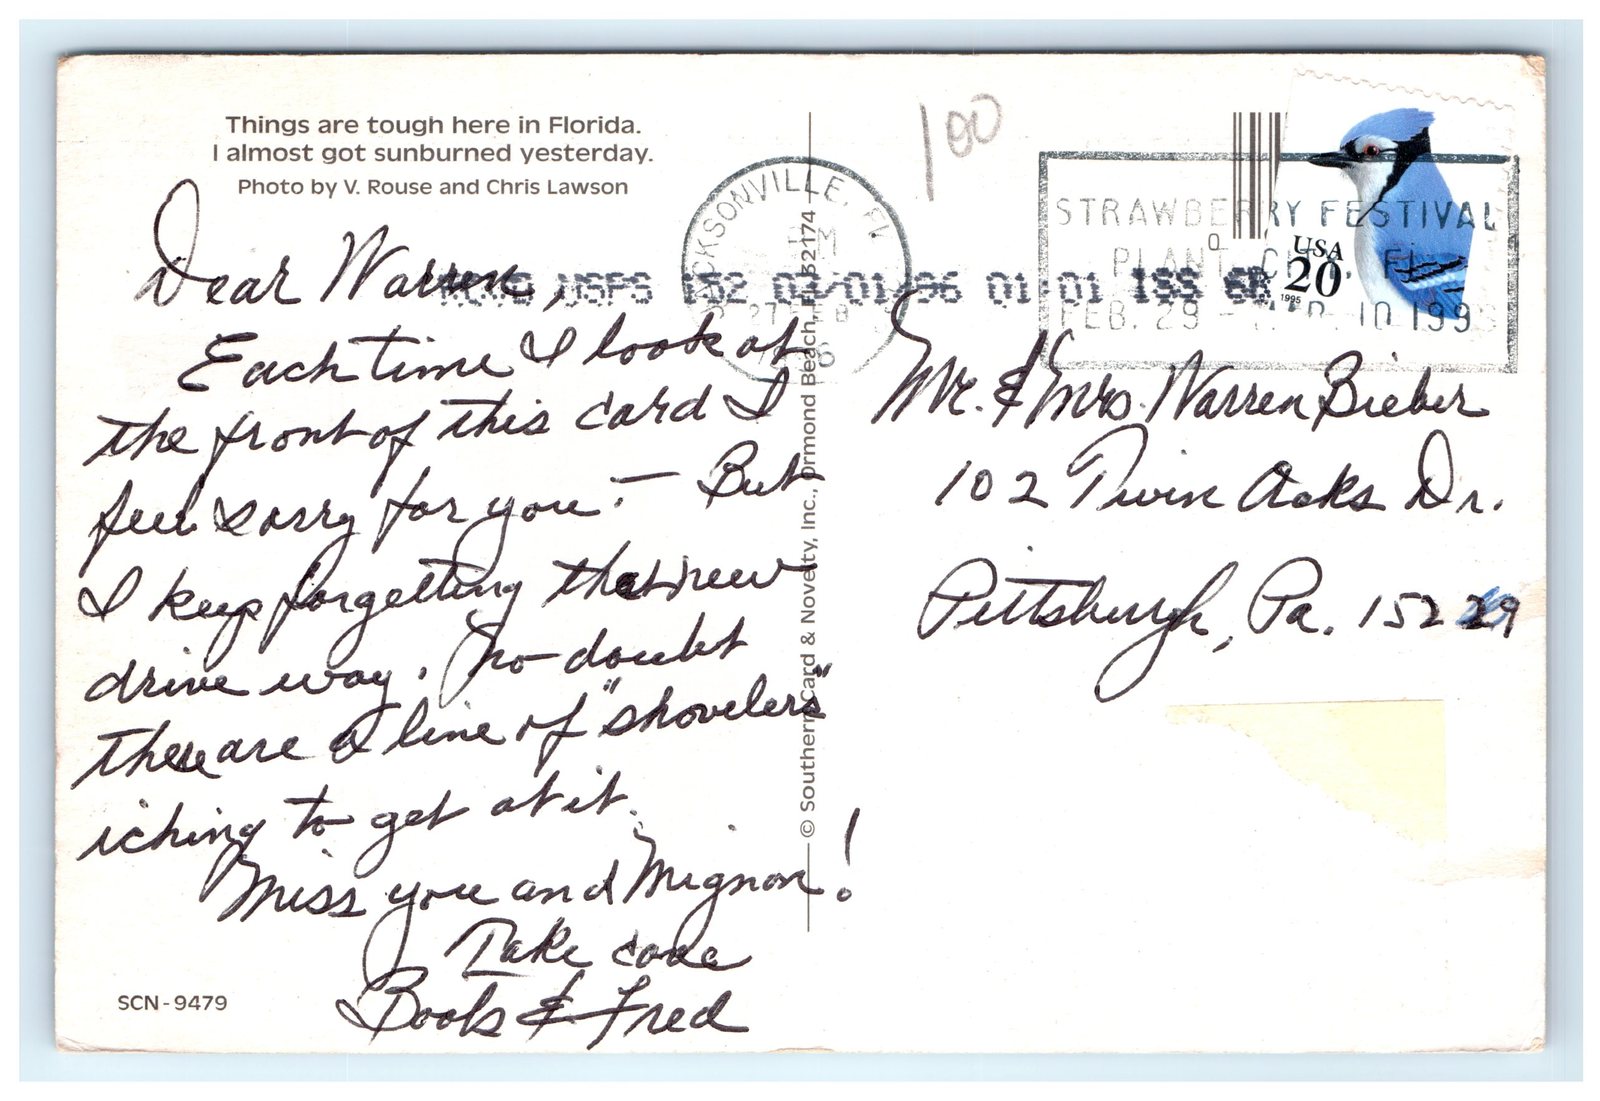 Things are tough here in Florida.
I almost got sunburned yesterday.
Photo by V. Rouse and Chris Lawson
Dear Warren,
Each time I look at
the front of this card I
feel sorry for you! — But
I keep forgetting that new
drive way. No doubt
there are a line of "shovelers"
iching to get at it.
Miss you and Mignon!
Take care
Boots & Fred
SCN-9479
© Southern Card & Novelty, Inc., Ormond Beach, FL 32174
100
JACKSONVILLE, FL
PM
27 FEB
USPS 152 01/01/96 01:01 ISS 6
STRAWBERRY FESTIVAL
PLANT CITY, FL
FEB. 29 - MAR. 10 1996
USA
20
1995
Mr. & Mrs. Warren Bieber
102 Twin Oaks Dr.
Pittsburgh, Pa. 15229